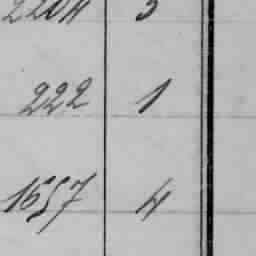 2204 3
222 1
1557 4